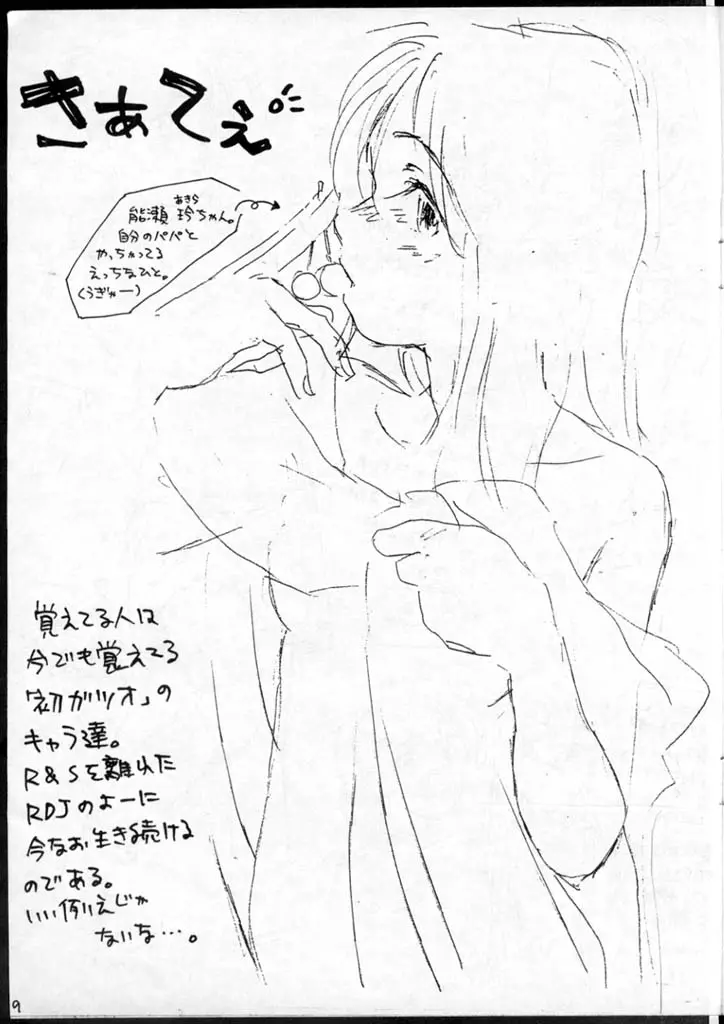 きぁてぇ
あきら
能瀬 玲ちゃん。
自分のパパと
やっちゃってる
えっちなひと。
(うぎゅー)
覚えてる人は
今でも覚えてる
「初ガツオ」の
キャラ達。
R&Sを離れた
RDJのよーに
今なお生き続ける
のである。
いい例えじゃ
ないな…。
9